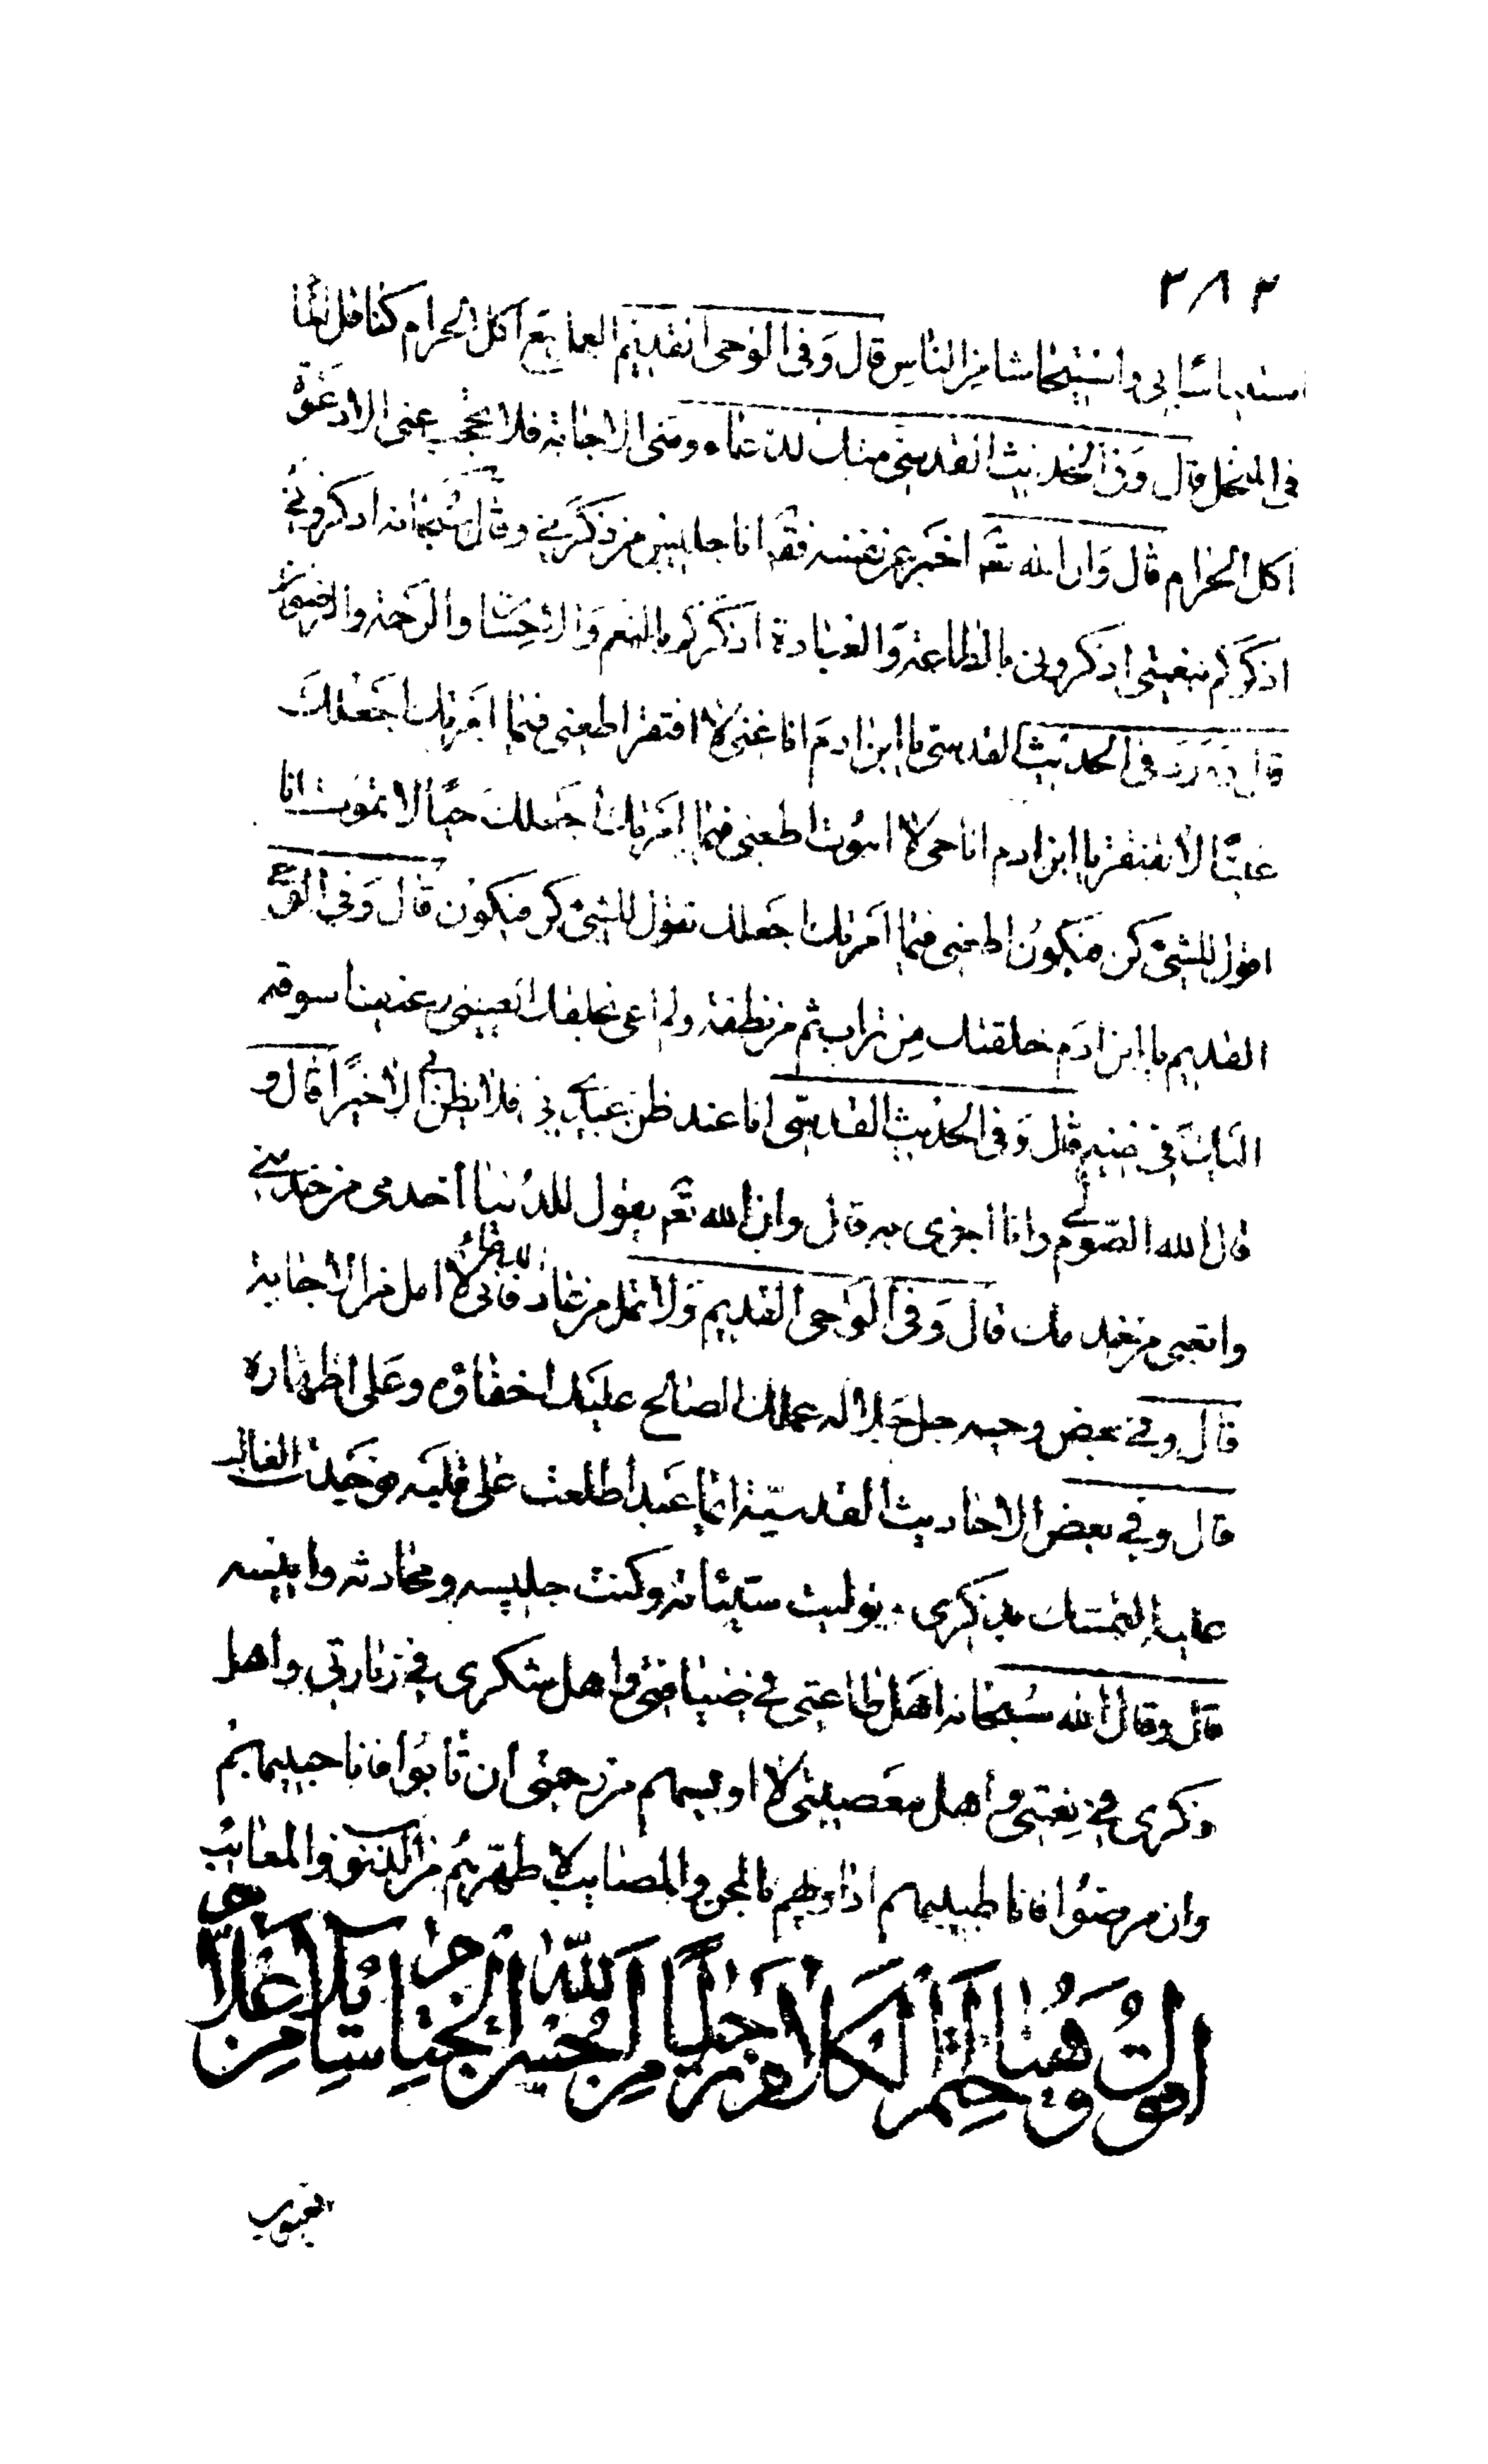 ٢٨٣
استيناسا بي واستيحاشا من الناس قال وفي الوحي القديم العمل مع اكل الحرام كناقل الماء
في المنخل قال وفي الحديث القدسي منك الدعاء ومني الاجابة فلا يحجب عني الا دعوة
اكل الحرام قال وان الله تعم اخبر عن نفسه فقال انا جليس من ذكرني وقال سبحانه اذكروني
اذكركم بنعمتي اذكروني بالطاعة والعبادة اذكركم بالنعم والاحسان والرحمة والرضوان
قال وورد في الحديث القدسي يا ابن ادم انا غني لا افتقر اطعني فيما امرتك اجعلك
غنيا لا تفتقر يا ابن ادم انا حي لا اموت اطعني فيما امرتك اجعلك حيا لا تموت انا
اقول للشئ كن فيكون اطعني فيما امرتك اجعلك تقول للشئ كن فيكون قال وفي الوحي
القديم يا ابن ادم خلقتك من تراب ثم من نطفة ولم اعي بخلقك ايعييني رغيف اسوقه
اليك في حينه قال وفي الحديث القدسي انا عند ظن عبدي بي فلا يظن بي الا خيرا قال و
قال الله الصوم لي وانا اجزي به قال وان الله تعم يقول للدنيا اخدمي من خدمني
واتعبي من خدمك قال وفي الوحي القديم ولا تمل من الدعاء فاني لا امل من الاجابة
قال وفي بعض وحيه جل جلاله عملك الصالح عليك اخفاؤه وعلي اظهاره
قال وفي بعض الاحاديث القدسية ايما عبد اطلعت على قلبه فوجدت الغالب
عليه التمسك بذكري توليت سياسته وكنت جليسه ومحادثه وانيسه
قال وقال الله سبحانه اهل طاعتي في ضيافتي واهل شكري في زيارتي واهل
ذكري في نعمتي واهل معصيتي لا اويسهم من رحمتي ان تابوا فانا حبيبهم
وان مرضوا فانا طبيبهم اداويهم بالمحن والمصايب لاطهرهم من الذنوب والمعايب